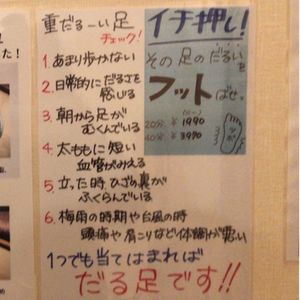 重だるーい足
チェック!
1. あまり歩かない
2. 日常的にだるさを
感じる
3. 朝から足が
むくんでいる
4. 太ももに短い
血管がみえる
5. 立った時ひざの裏が
ふくらんでいる
6. 梅雨の時期や台風の時
頭痛や肩こりなど体調が悪い
1つでも当てはまれば
だる足です!!
イチ押し!
その足のだるい
を
フット
ばせ。
20分 ¥1990
40分 ¥3970
ツボ